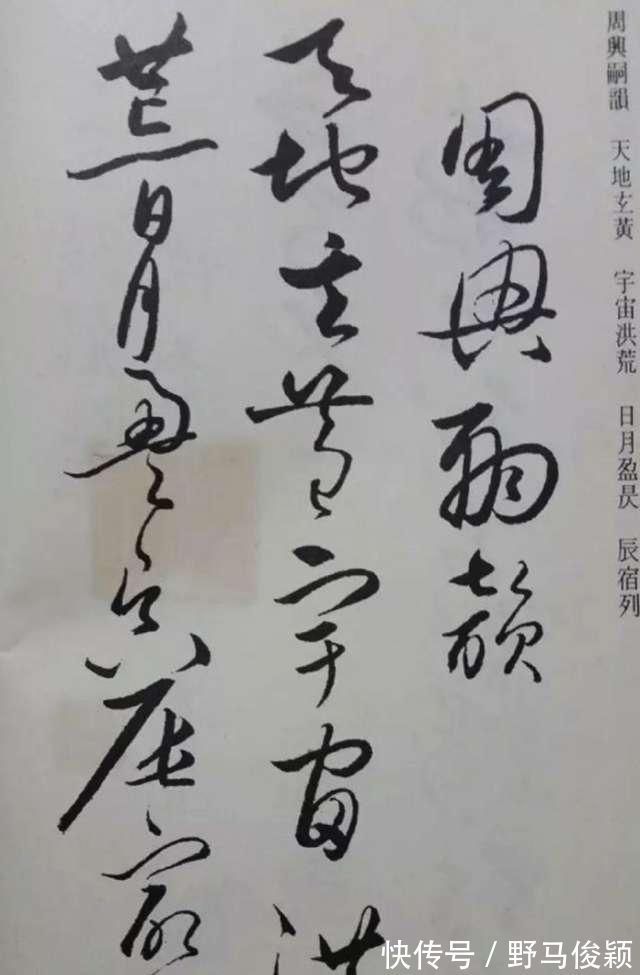 周興嗣韻 天地玄黃 宇宙洪荒 日月盈昃 辰宿列
周興嗣韻
天地玄黃宇宙洪
荒日月盈昃辰宿
快传号 / 野马俊颖